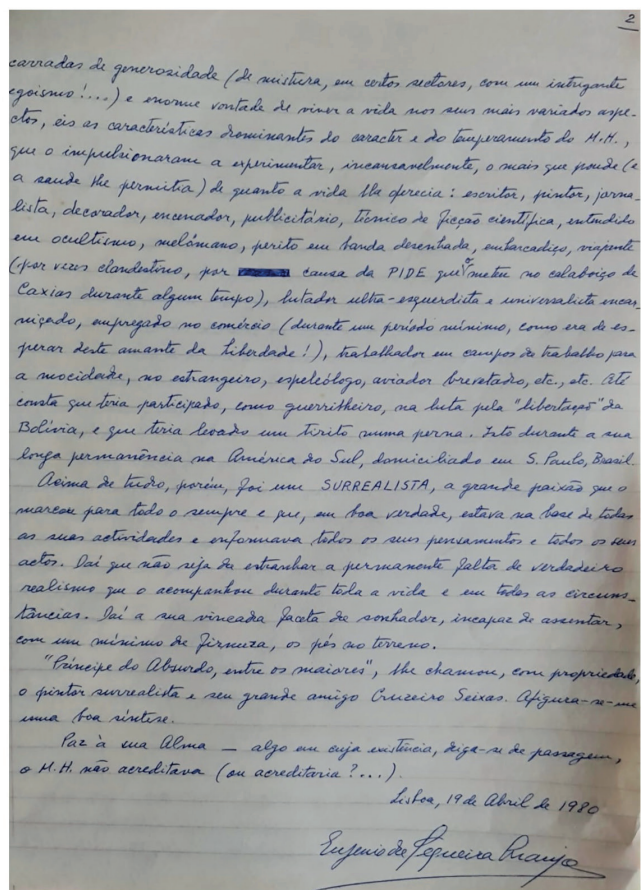 2
carradas de generosidade (de mistura, em certos sectores, com um intrigante
egoísmo!...) e enorme vontade de viver a vida nos seus mais variados aspe-
ctos, eis as características dominantes do caracter e do temperamento do M.H.,
que o impulsionaram a experimentar, incansavelmente, o mais que poude (e
a saude lhe permitia) de quanto a vida lhe oferecia: escritor, pintor, jorna-
lista, decorador, encenador, publicitário, técnico de ficção científica, entendido
em ocultismo, melómano, perito em banda desenhada, embarcadiço, viajante
(por vezes clandestino, por causa da PIDE que o meteu no calaboiço de
Caxias durante algum tempo), lutador ultra-esquerdista e universalista encar-
niçado, empregado no comércio (durante um período mínimo, como era de es-
perar deste amante da liberdade!), trabalhador em campos de trabalho para
a mocidade, no estrangeiro, espeleólogo, aviador brevetado, etc., etc. Até
consta que teria participado, como guerrilheiro, na luta pela "libertação" da
Bolívia, e que teria levado um tirito numa perna. Isto durante a sua
longa permanência na América do Sul, domiciliado em S. Paulo, Brasil.
Acima de tudo, porém, foi um SURREALISTA, a grande paixão que o
marcou para todo o sempre e que, em boa verdade, estava na base de todas
as suas actividades e enformava todos os seus pensamentos e todos os seus
actos. Daí que não seja de estranhar a permanente falta de verdadeiro
realismo que o acompanhou durante toda a vida e em todas as circuns-
tâncias. Daí a sua vincada faceta de sonhador, incapaz de assentar,
com um mínimo de firmeza, os pés no terreno.
"Príncipe do Absurdo, entre os maiores", lhe chamou, com propriedade,
o pintor surrealista e seu grande amigo Cruzeiro Seixas. Afigura-se-me
uma boa síntese.
Paz à sua Alma — algo em cuja existência, diga-se de passagem,
o M.H. não acreditava (ou acreditaria?...).
Lisboa, 19 de Abril de 1980
Eugenio de Araujo